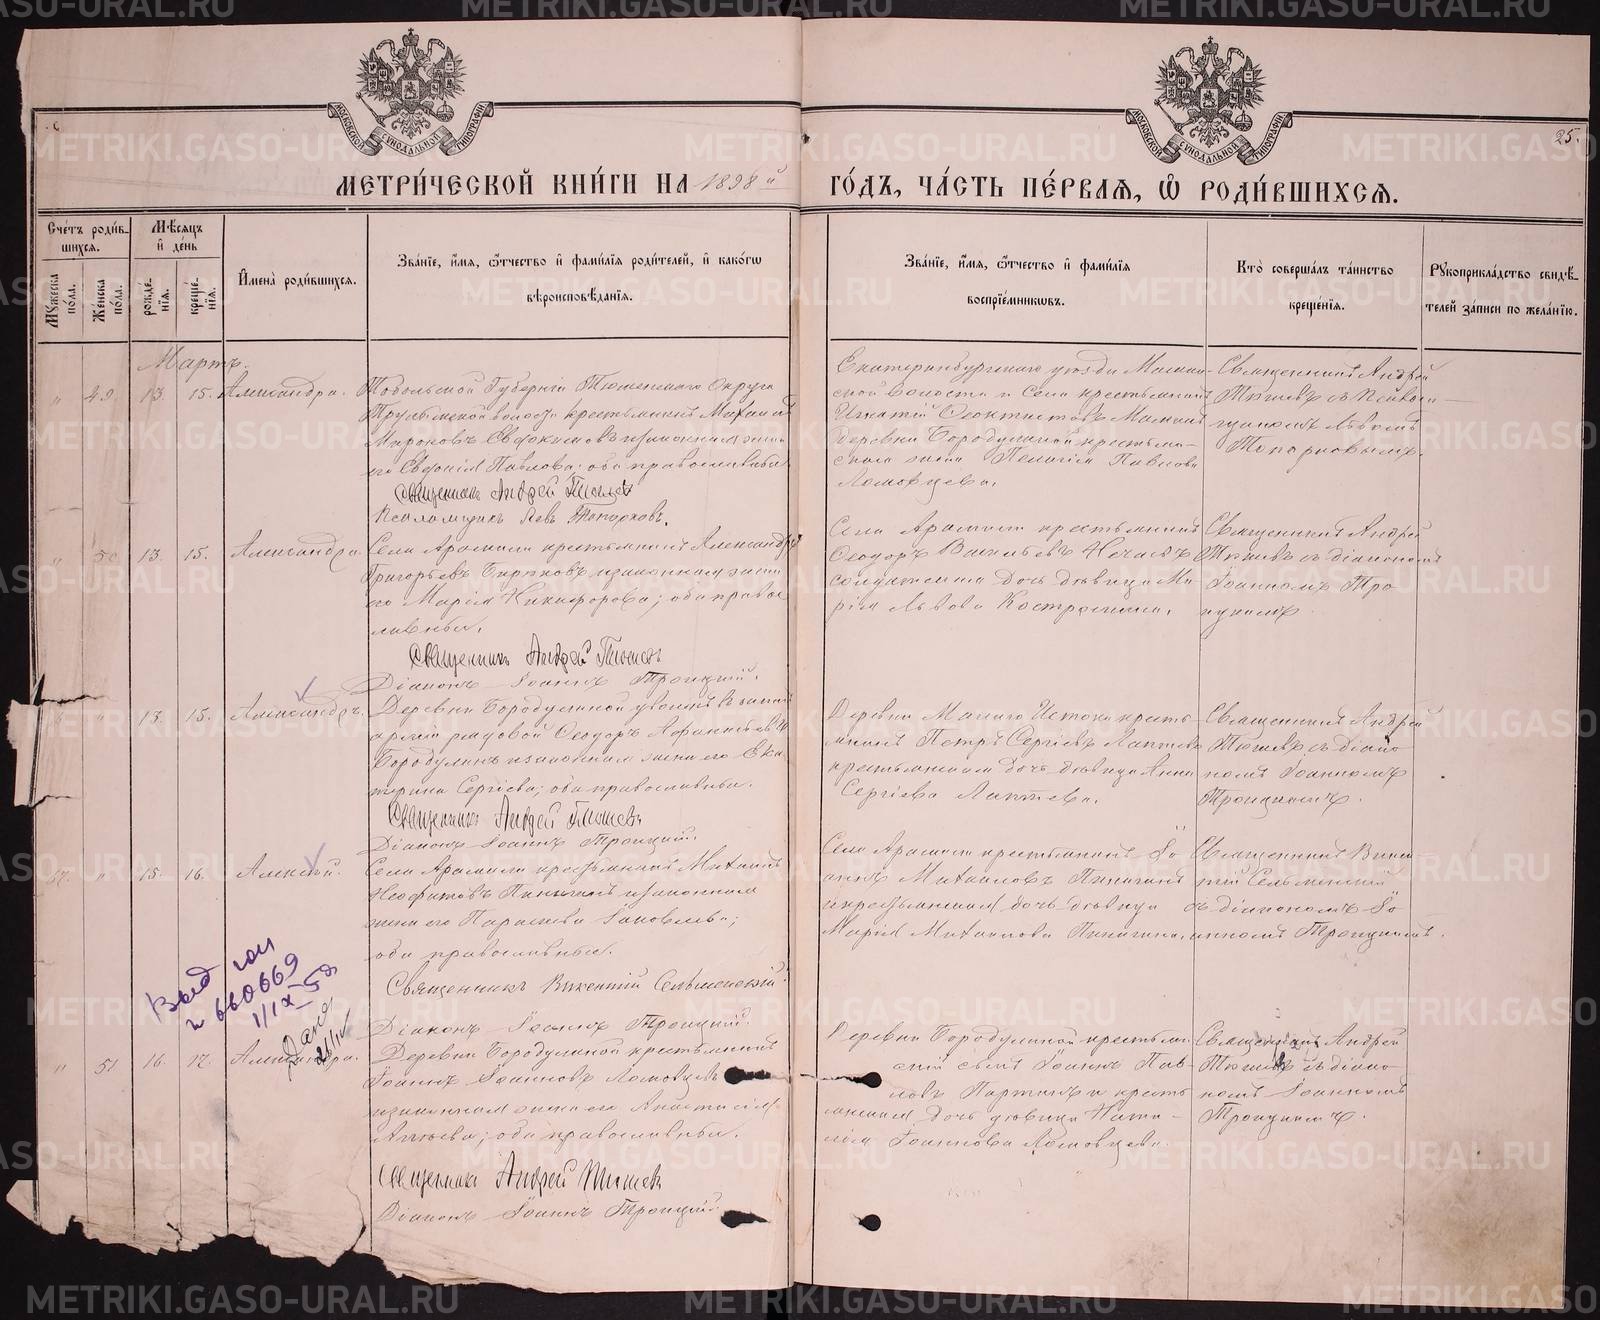 МЕТРИ́ЧЕСКОЙ КНИ́ГИ НА 1898й ГО́ДЪ, ЧА́СТЬ ПЕ́РВАЯ, Ѡ РОДИ́ВШИХСЯ.
25.
Сче́тъ роди́вшихся.
Мѣ́сяцъ и де́нь
Му́жеска по́ла.
Же́нска по́ла.
рожде́нїя.
креще́нїя.
И́мена̀ роди́вшихся.
Зва́нїе, и́мя, ѻ́тчество и фами́лїя роди́телей, и како́гѡ
вѣроисповѣ́данїя.
Зва́нїе, и́мя, ѻ́тчество и фами́лїя
воспрїе́мникѡвъ.
Кто̀ соверша́лъ та́инство
креще́нїя.
Рукоприкла́дство свидѣ́телей за́писи по жела́нїю.
Мартъ.
" 49 13. 15. Александра.
Тобольской Губерніи Тюменскаго Округа
волости крестьянинъ Михаилъ
Мироновъ Евдокимовъ и законная жена
его Евфросинія Павлова; оба православные.
Священникъ Андрей
Псаломщикъ Левъ Топорковъ.
Екатеринбургскаго уѣзда
ской волости и села крестьянинъ
Игнатій Ѳеоктистовъ
Деревни Бородулиной крестьян-
ская жена Пелагія Павлова
Ломовцева.
Священникъ Андрей
съ псалом-
щикомъ Львомъ
Топорковымъ.
" 50 13. 15. Александра.
Села Арамили крестьянинъ Александръ
Григорьевъ Бирюковъ и законная жена
его Марія Никифорова; оба право-
славные.
Священникъ Андрей
Діаконъ Іоаннъ Троицкій.
Села Арамили крестьянинъ
Ѳеодоръ Васильевъ Нечаевъ
солдатская дочь дѣвица Ма-
рія Львова Костромина.
Священникъ Андрей
съ діакономъ
Іоанномъ Тро-
ицкимъ.
" 13. 15. Александръ.
Деревни Бородулиной уволенный въ запасъ
арміи рядовой Ѳеодоръ
Бородулинъ и законная жена его Ека-
терина Сергіева; оба православные.
Священникъ Андрей
Діаконъ Іоаннъ Троицкій.
Деревни Малаго Истока кресть-
янинъ Петръ Сергіевъ Лаптевъ
крестьянская дочь дѣвица Анна
Сергіева Лаптева.
Священникъ Андрей
съ діако-
номъ Іоанномъ
Троицкимъ.
" 15. 16. Алексѣй.
Села Арамили крестьянинъ Михаилъ
Неофитовъ и законная
жена его Параскева Іаковлева;
оба православные.
Священникъ Викентій Сельменскій
Діаконъ Іоаннъ Троицкій.
Села Арамили крестьянинъ Іо-
аннъ Михаиловъ
и крестьянская дочь дѣвица
Марія Михаилова
Священникъ Викен-
тій Сельменскій
съ діакономъ Іо-
анномъ Троицкимъ.
Выд
660669
1/IX 58
" 51 16. 17. Александра.
Деревни Бородулиной крестьянинъ
Іоаннъ Іоанновъ Ломовцевъ
и законная жена его Анастасія
оба православные.
Священникъ Андрей
Діаконъ Іоаннъ Троицкій.
Деревни Бородулиной крестьян-
скій сынъ Іоаннъ Пав-
ловъ и кресть-
янская дочь дѣвица Ната-
лія Іоаннова Ломовцева.
Священникъ Андрей
съ діако-
номъ Іоанномъ
Троицкимъ.
МОСКОВСКОЙ СѴНОДАЛЬНОЙ ТИПОГРАФІИ
МОСКОВСКОЙ СѴНОДАЛЬНОЙ ТИПОГРАФІИ
METRIKI.GASO-URAL.RU